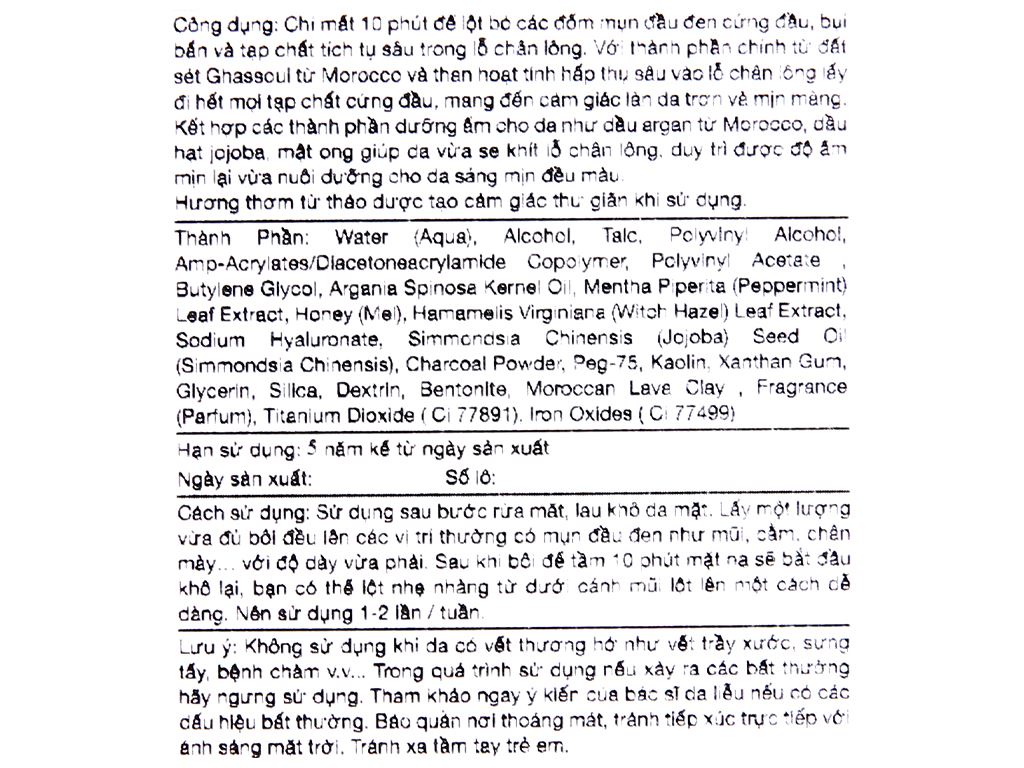 Công dụng: Chỉ mất 10 phút để lột bỏ các đốm mụn đầu đen cứng đầu, bụi
bẩn và tạp chất tích tụ sâu trong lỗ chân lông. Với thành phần chính từ đất
sét Ghassoul từ Morocco và than hoạt tính hấp thụ sâu vào lỗ chân lông lấy
đi hết mọi tạp chất cứng đầu, mang đến cảm giác làn da trơn và mịn màng.
Kết hợp các thành phần dưỡng ẩm cho da như dầu argan từ Morocco, dầu
hạt jojoba, mật ong giúp da vừa se khít lỗ chân lông, duy trì được độ ẩm
mịn lại vừa nuôi dưỡng cho da sáng mịn đều màu.
Hương thơm từ thảo dược tạo cảm giác thư giãn khi sử dụng.
Thành Phần: Water (Aqua), Alcohol, Talc, Polyvinyl Alcohol,
Amp-Acrylates/Diacetoneacrylamide Copolymer, Polyvinyl Acetate ,
Butylene Glycol, Argania Spinosa Kernel Oil, Mentha Piperita (Peppermint)
Leaf Extract, Honey (Mel), Hamamelis Virginiana (Witch Hazel) Leaf Extract,
Sodium Hyaluronate, Simmondsia Chinensis (Jojoba) Seed Oil
(Simmondsia Chinensis), Charcoal Powder, Peg-75, Kaolin, Xanthan Gum,
Glycerin, Silica, Dextrin, Bentonite, Moroccan Lava Clay , Fragrance
(Parfum), Titanium Dioxide ( Ci 77891), Iron Oxides ( Ci 77499)
Hạn sử dụng: 5 năm kể từ ngày sản xuất
Ngày sản xuất: Số lô:
Cách sử dụng: Sử dụng sau bước rửa mặt, lau khô da mặt. Lấy một lượng
vừa đủ bôi đều lên các vị trí thường có mụn đầu đen như mũi, cằm, chân
mày... với độ dày vừa phải. Sau khi bôi để tầm 10 phút mặt nạ sẽ bắt đầu
khô lại, bạn có thể lột nhẹ nhàng từ dưới cánh mũi lột lên một cách dễ
dàng. Nên sử dụng 1-2 lần / tuần.
Lưu ý: Không sử dụng khi da có vết thương hở như vết trầy xước, sưng
tấy, bệnh chàm v.v... Trong quá trình sử dụng nếu xảy ra các bất thường
hãy ngưng sử dụng. Tham khảo ngay ý kiến của bác sĩ da liễu nếu có các
dấu hiệu bất thường. Bảo quản nơi thoáng mát, tránh tiếp xúc trực tiếp với
ánh sáng mặt trời. Tránh xa tầm tay trẻ em.